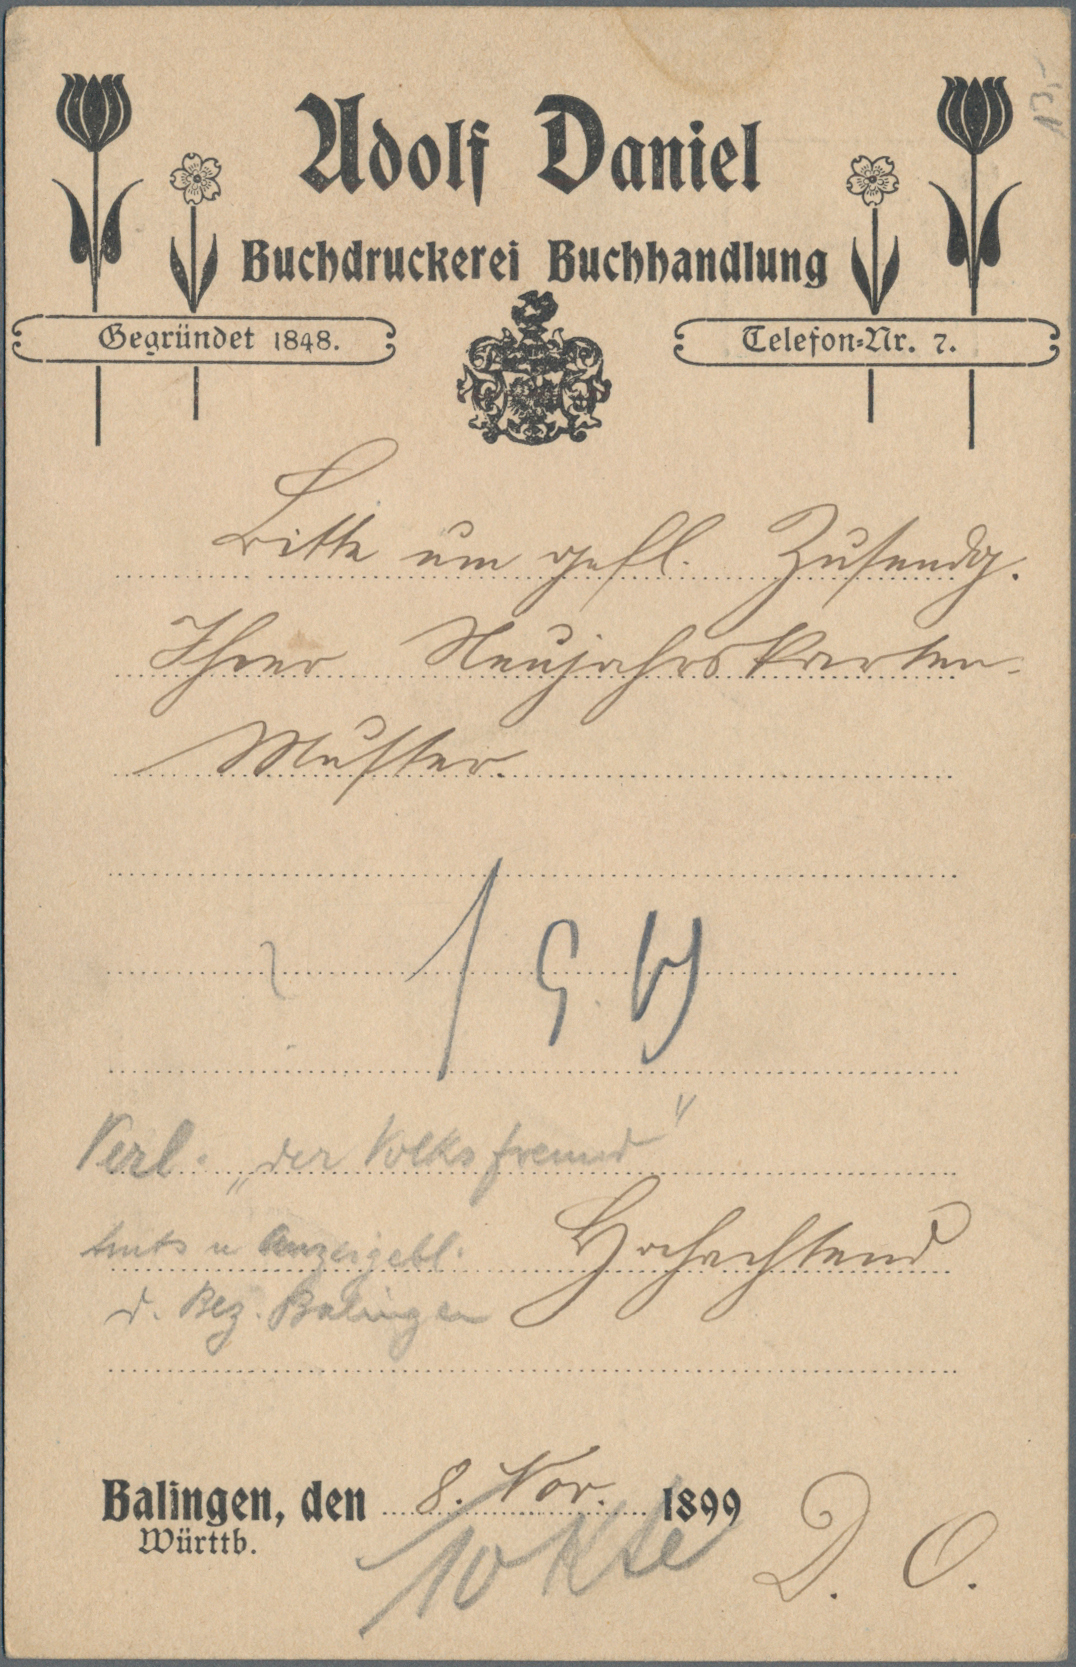 Adolf Daniel
Buchdruckerei Buchhandlung
Gegründet 1848.
Telefon-Nr. 7.
Bitte um gefl. Zusendg.
Ihrer Neujahrskarten-
Muster.
Verl. „der Volksfreund"
Amts u Anzeigebl.
d. Bez. Balingen
Hochachtend
Balingen, den 8. Nov. 1899
Württb.
10 Kte
D. O.